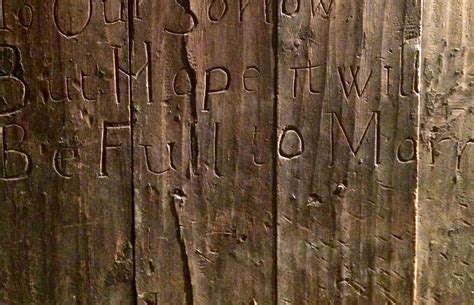 To Our Sorrow
But Hope it will
Be Full to Morr